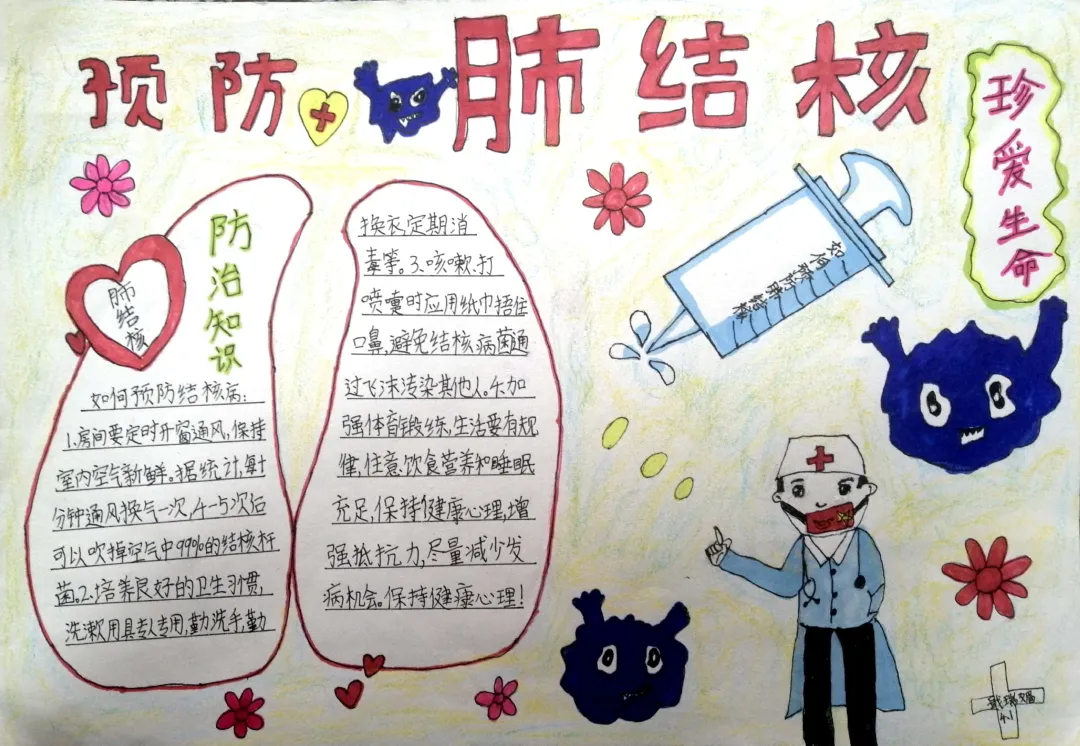 预防肺结核
珍爱生命
肺
结核
防治知识
如何预防结核病:
1.房间要定时开窗通风,保持
室内空气新鲜。据统计,每十
分钟通风换气一次,4-5次后
可以吹掉空气中99%的结核杆
菌。2.培养良好的卫生习惯,
洗漱用具专人专用,勤洗手,勤
换衣,定期消
毒等。3.咳嗽、打
喷嚏时应用纸巾捂住
口鼻,避免结核病菌通
过飞沫传染其他人。4.加
强体育锻练,生活要有规
律,注意饮食营养和睡眠
充足,保持健康心理,增
强抵抗力,尽量减少发
病机会。保持健康心理!
如何预防肺结核